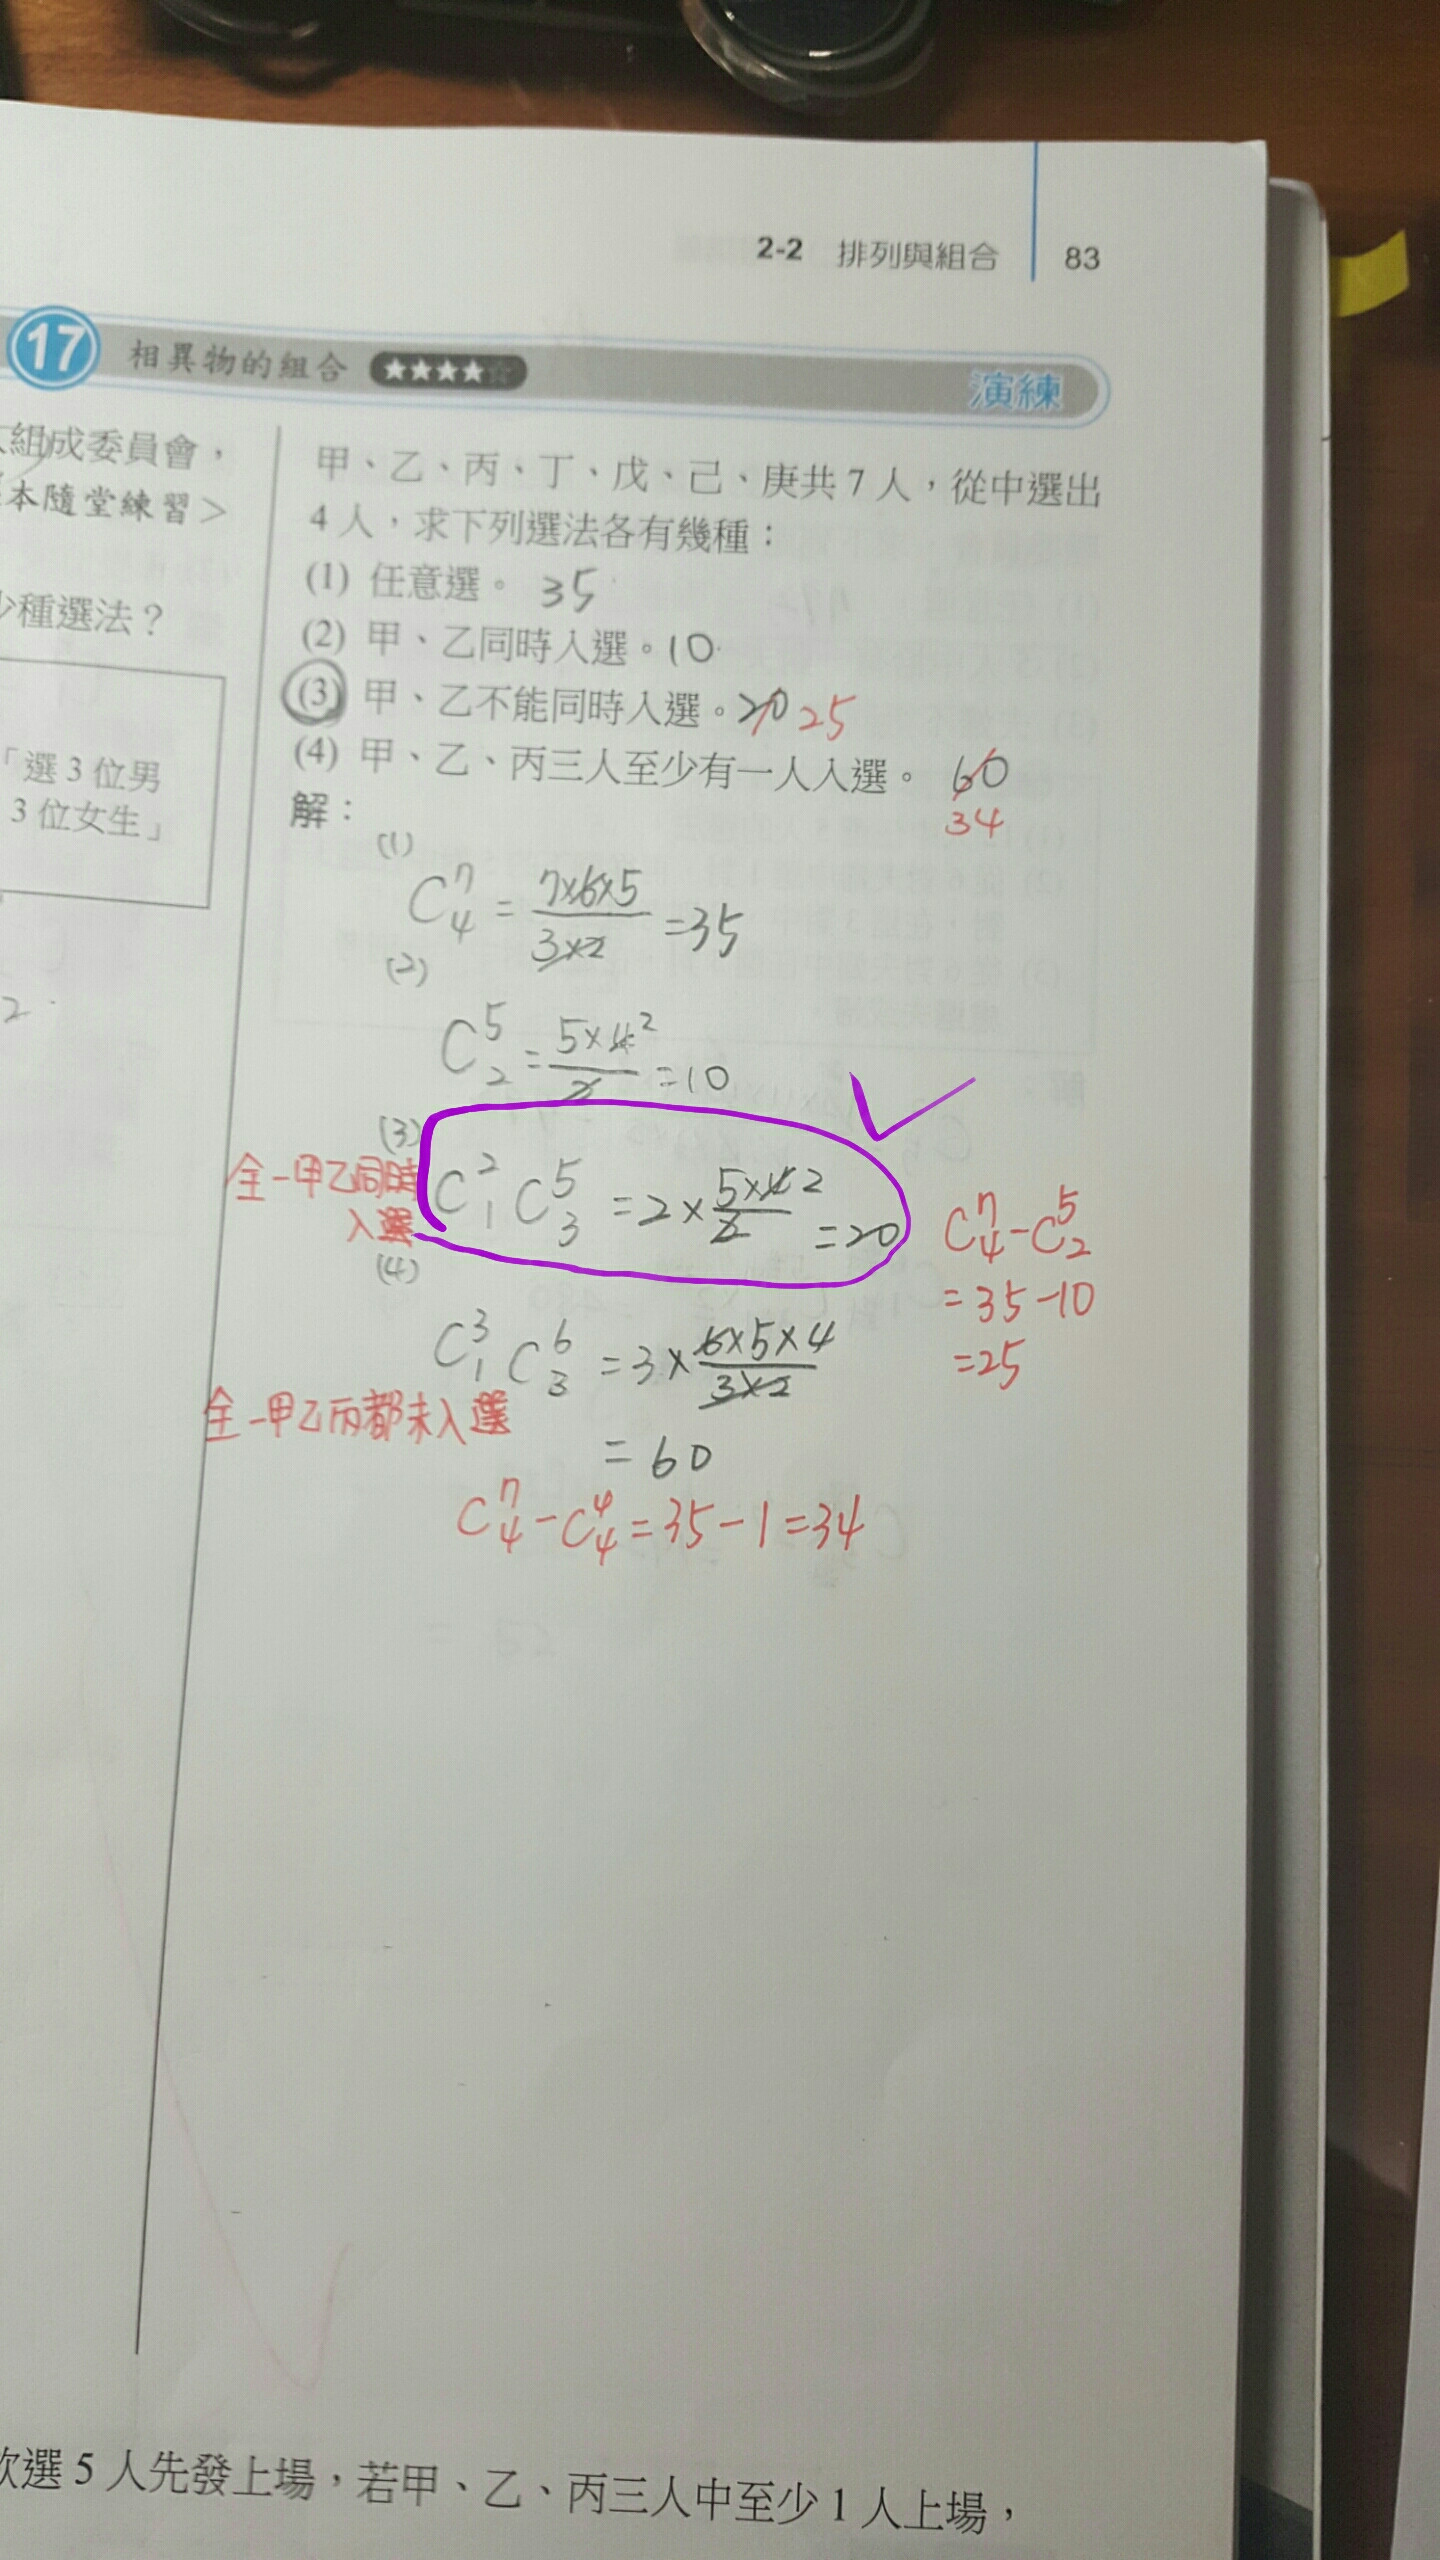 2-2 排列與組合 83
17 相異物的組合 ★★★★☆ 演練
組成委員會，
本隨堂練習＞
種選法？
「選3位男
3位女生」
2
甲、乙、丙、丁、戊、己、庚共7人，從中選出
4人，求下列選法各有幾種：
(1) 任意選。 35
(2) 甲、乙同時入選。10
(3) 甲、乙不能同時入選。20 25
(4) 甲、乙、丙三人至少有一人入選。 60
34
解：
(1)
C⁷₄ = 7×6×5/3×2 = 35
(2)
C⁵₂ = 5×4²/2 = 10
(3)
全－甲乙同時
入選
C²₁ C⁵₃ = 2 × 5×4 2/2 = 20
C⁷₄ - C⁵₂
= 35 - 10
= 25
(4)
C³₁ C⁶₃ = 3 × 6×5×4/3×2
全－甲乙丙都未入選
= 60
C⁷₄ - C⁴₄ = 35 - 1 = 34
選5人先發上場，若甲、乙、丙三人中至少1人上場，